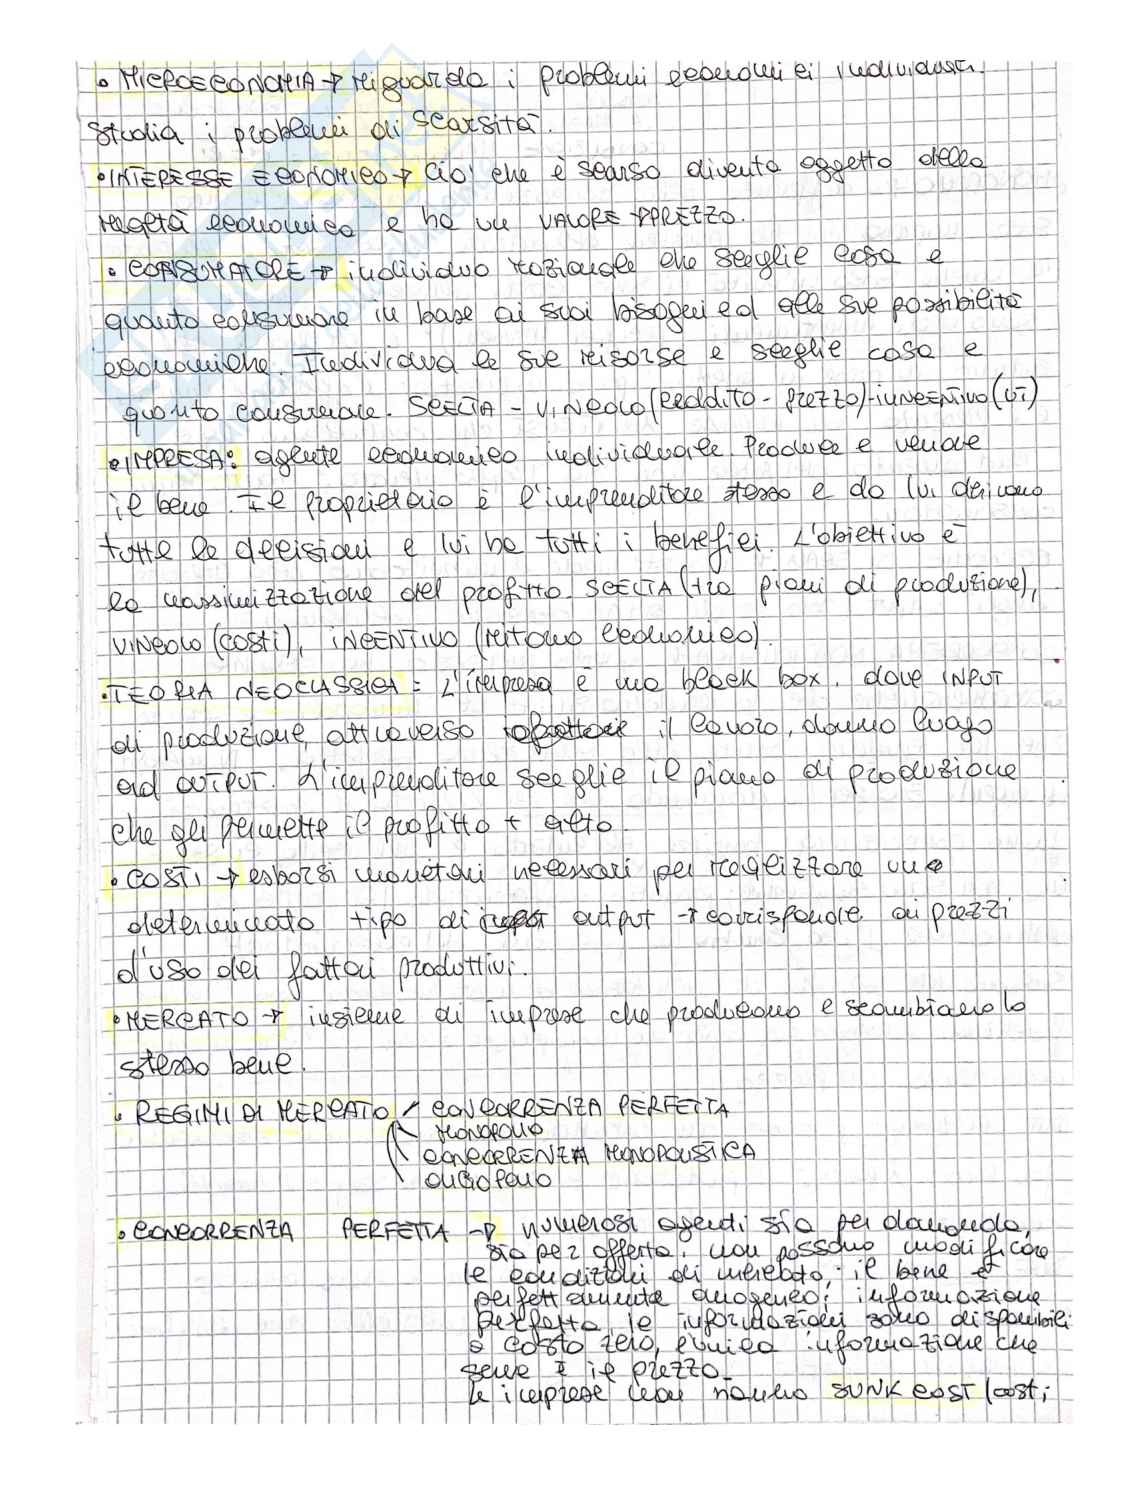 • MICROECONOMIA → Riguarda i problemi economici individuali.
Studia i problemi di scarsità.
• INTERESSE ECONOMICO → Ciò che è scarso diventa oggetto della
realtà economica e ha un VALORE → PREZZO.
• CONSUMATORE → individuo razionale che sceglie cosa e
quanto consumare in base ai suoi bisogni ed alle sue possibilità
economiche. Individua le sue risorse e sceglie cosa e
quanto consumare. SCELTA - VINCOLO (Reddito - prezzo) - iNCENTIVO (Ui)
• IMPRESA: agente economico individuale. Produce e vende
il bene. Il proprietario è l'imprenditore stesso e da lui derivano
tutte le decisioni e lui ha tutti i benefici. L'obiettivo è
la massimizzazione del profitto. SCELTA (tra piani di produzione),
VINCOLO (costi), iNCENTIVO (ritorno economico).
• TEORIA NEOCLASSICA = L'impresa è una black box. dove INPUT
di produzione, attraverso il lavoro, danno luogo
ad OUTPUT. L'imprenditore sceglie il piano di produzione
che gli permette il profitto + alto.
• COSTI → esborsi monetari necessari per realizzare un
determinato tipo di output → corrisponde ai prezzi
d'uso dei fattori produttivi.
• MERCATO → insieme di imprese che producono e scambiano lo
stesso bene.
• REGIMI DI MERCATO / CONCORRENZA PERFETTA
MONOPOLIO
CONCORRENZA MONOPOLISTICA
OLIGOPOLIO
• CONCORRENZA PERFETTA → numerosi agenti sia per domanda,
sia per offerta. non possono modificare
le condizioni di mercato; il bene è
perfettamente omogeneo; informazione
perfetta, le informazioni sono disponibili
a costo zero, l'unica informazione che
serve è il prezzo.
le imprese non hanno SUNK COST (costi